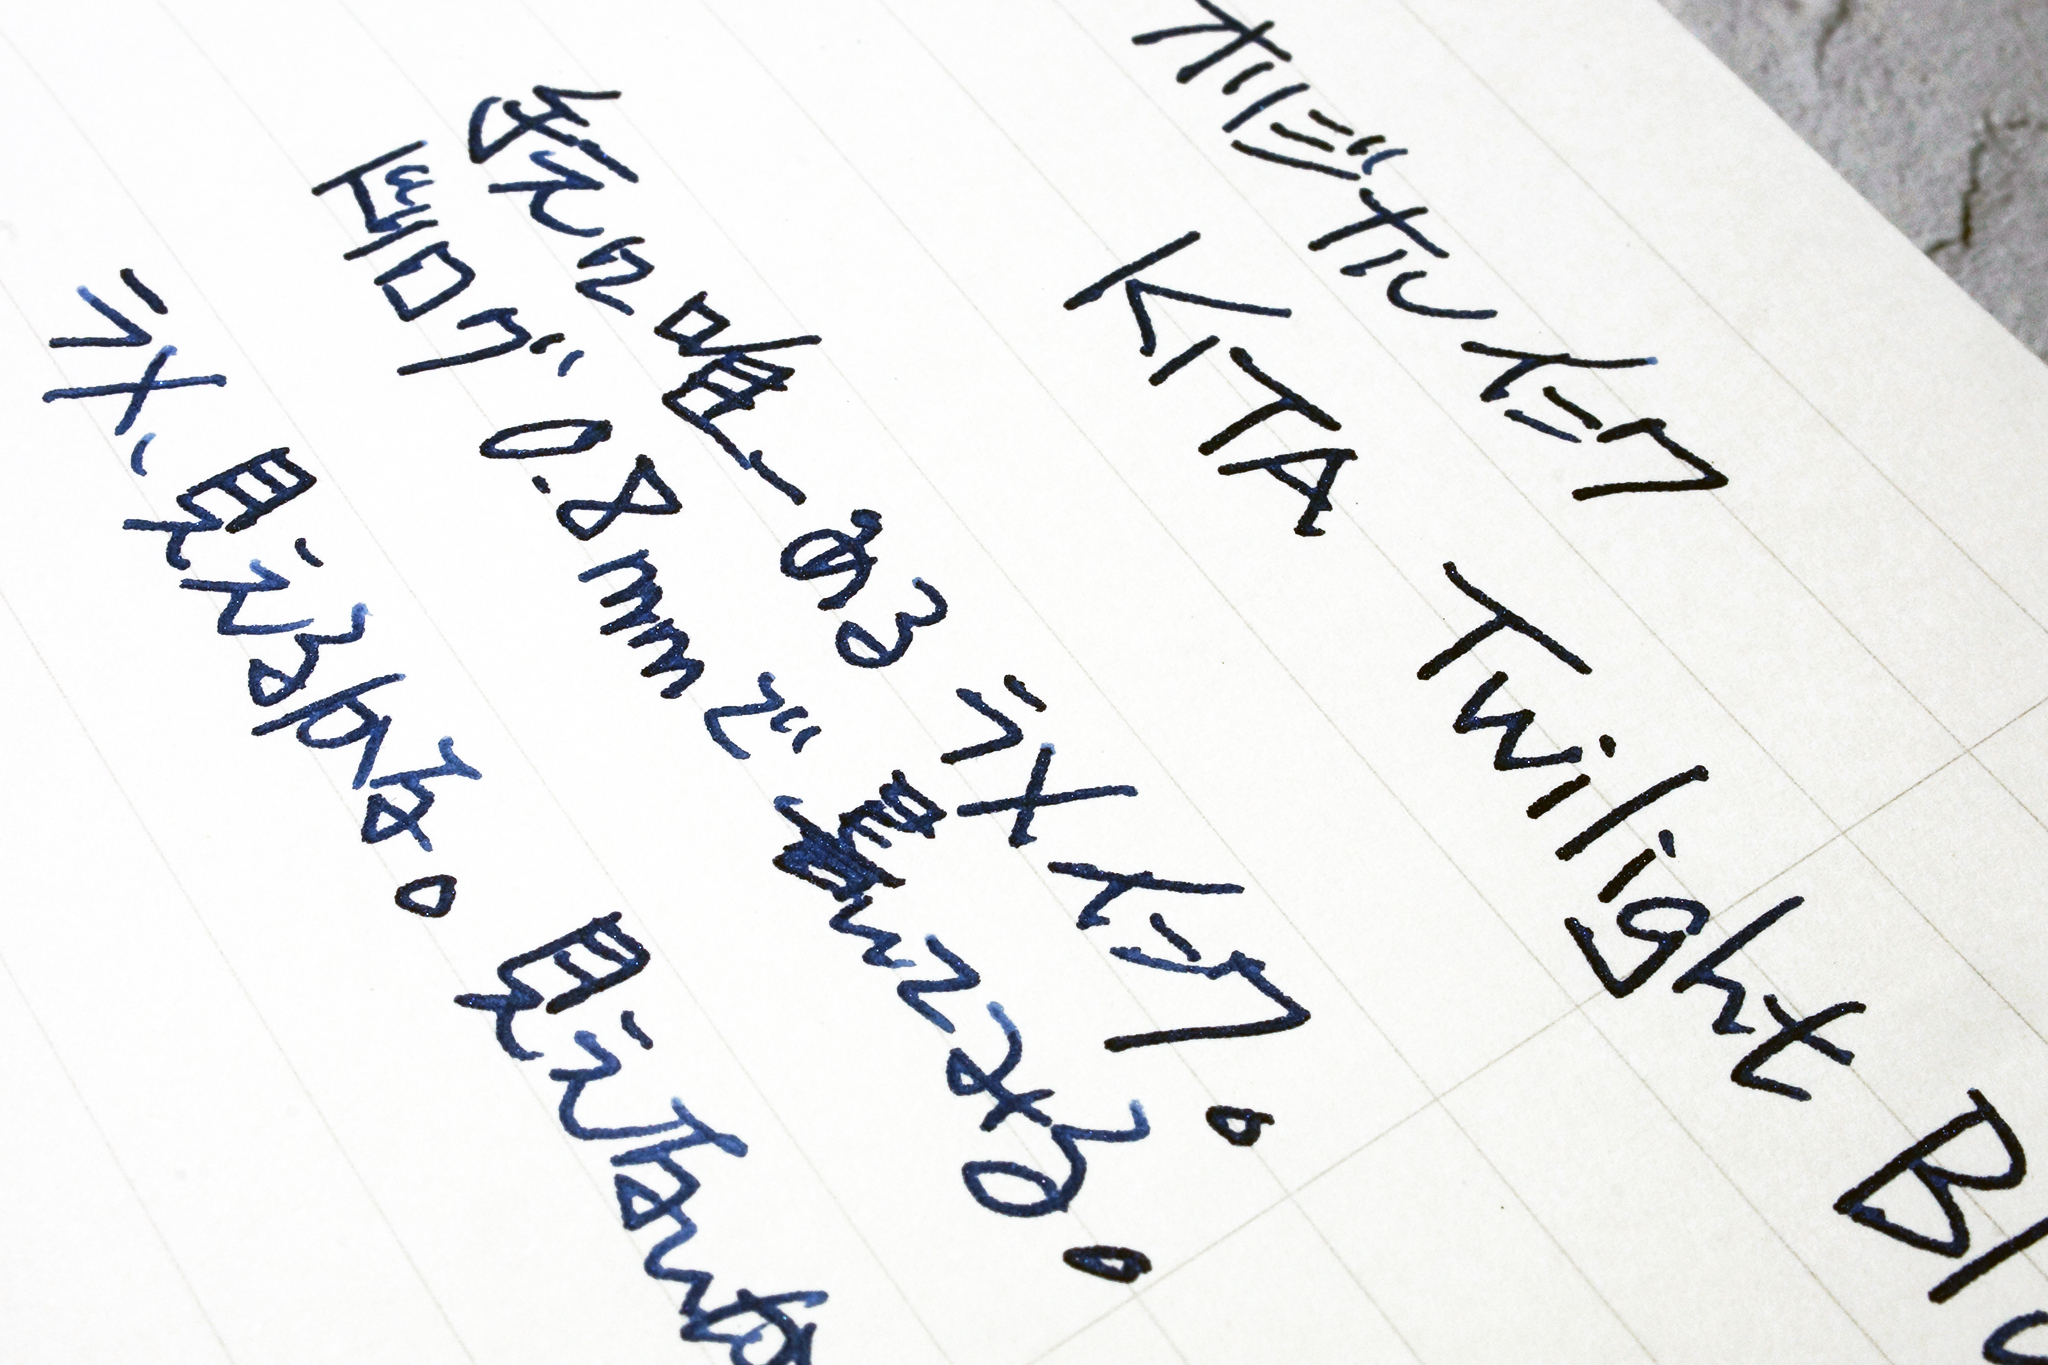 オリジナルインク
KITA Twilight
手元に唯一あるラメインク。
0.8mmで書いてみる。
ラメ、見えるかな。見えない